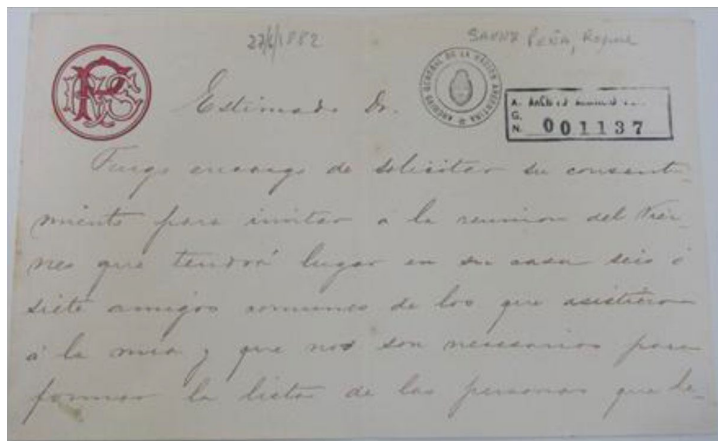 27/6/1882
SAENZ PEÑA, Roque
ARCHIVO GENERAL DE LA NACION ARGENTINA
A.
G.
N. 001137
Estimado Dr.
Tengo encargo de solicitar su consenti-
miento para invitar á la reunion del Vier-
nes que tendrá lugar en su casa seis ó
siete amigos comunes de los que asistieron
á la mia y que nos son necesarios para
formar la lista de las personas que de-